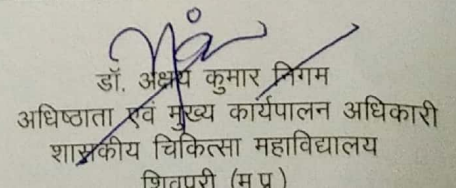 डॉ. अक्षय कुमार निगम
अधिष्ठाता एवं मुख्य कार्यपालन अधिकारी
शासकीय चिकित्सा महाविद्यालय
शिवपुरी (म.प्र.)